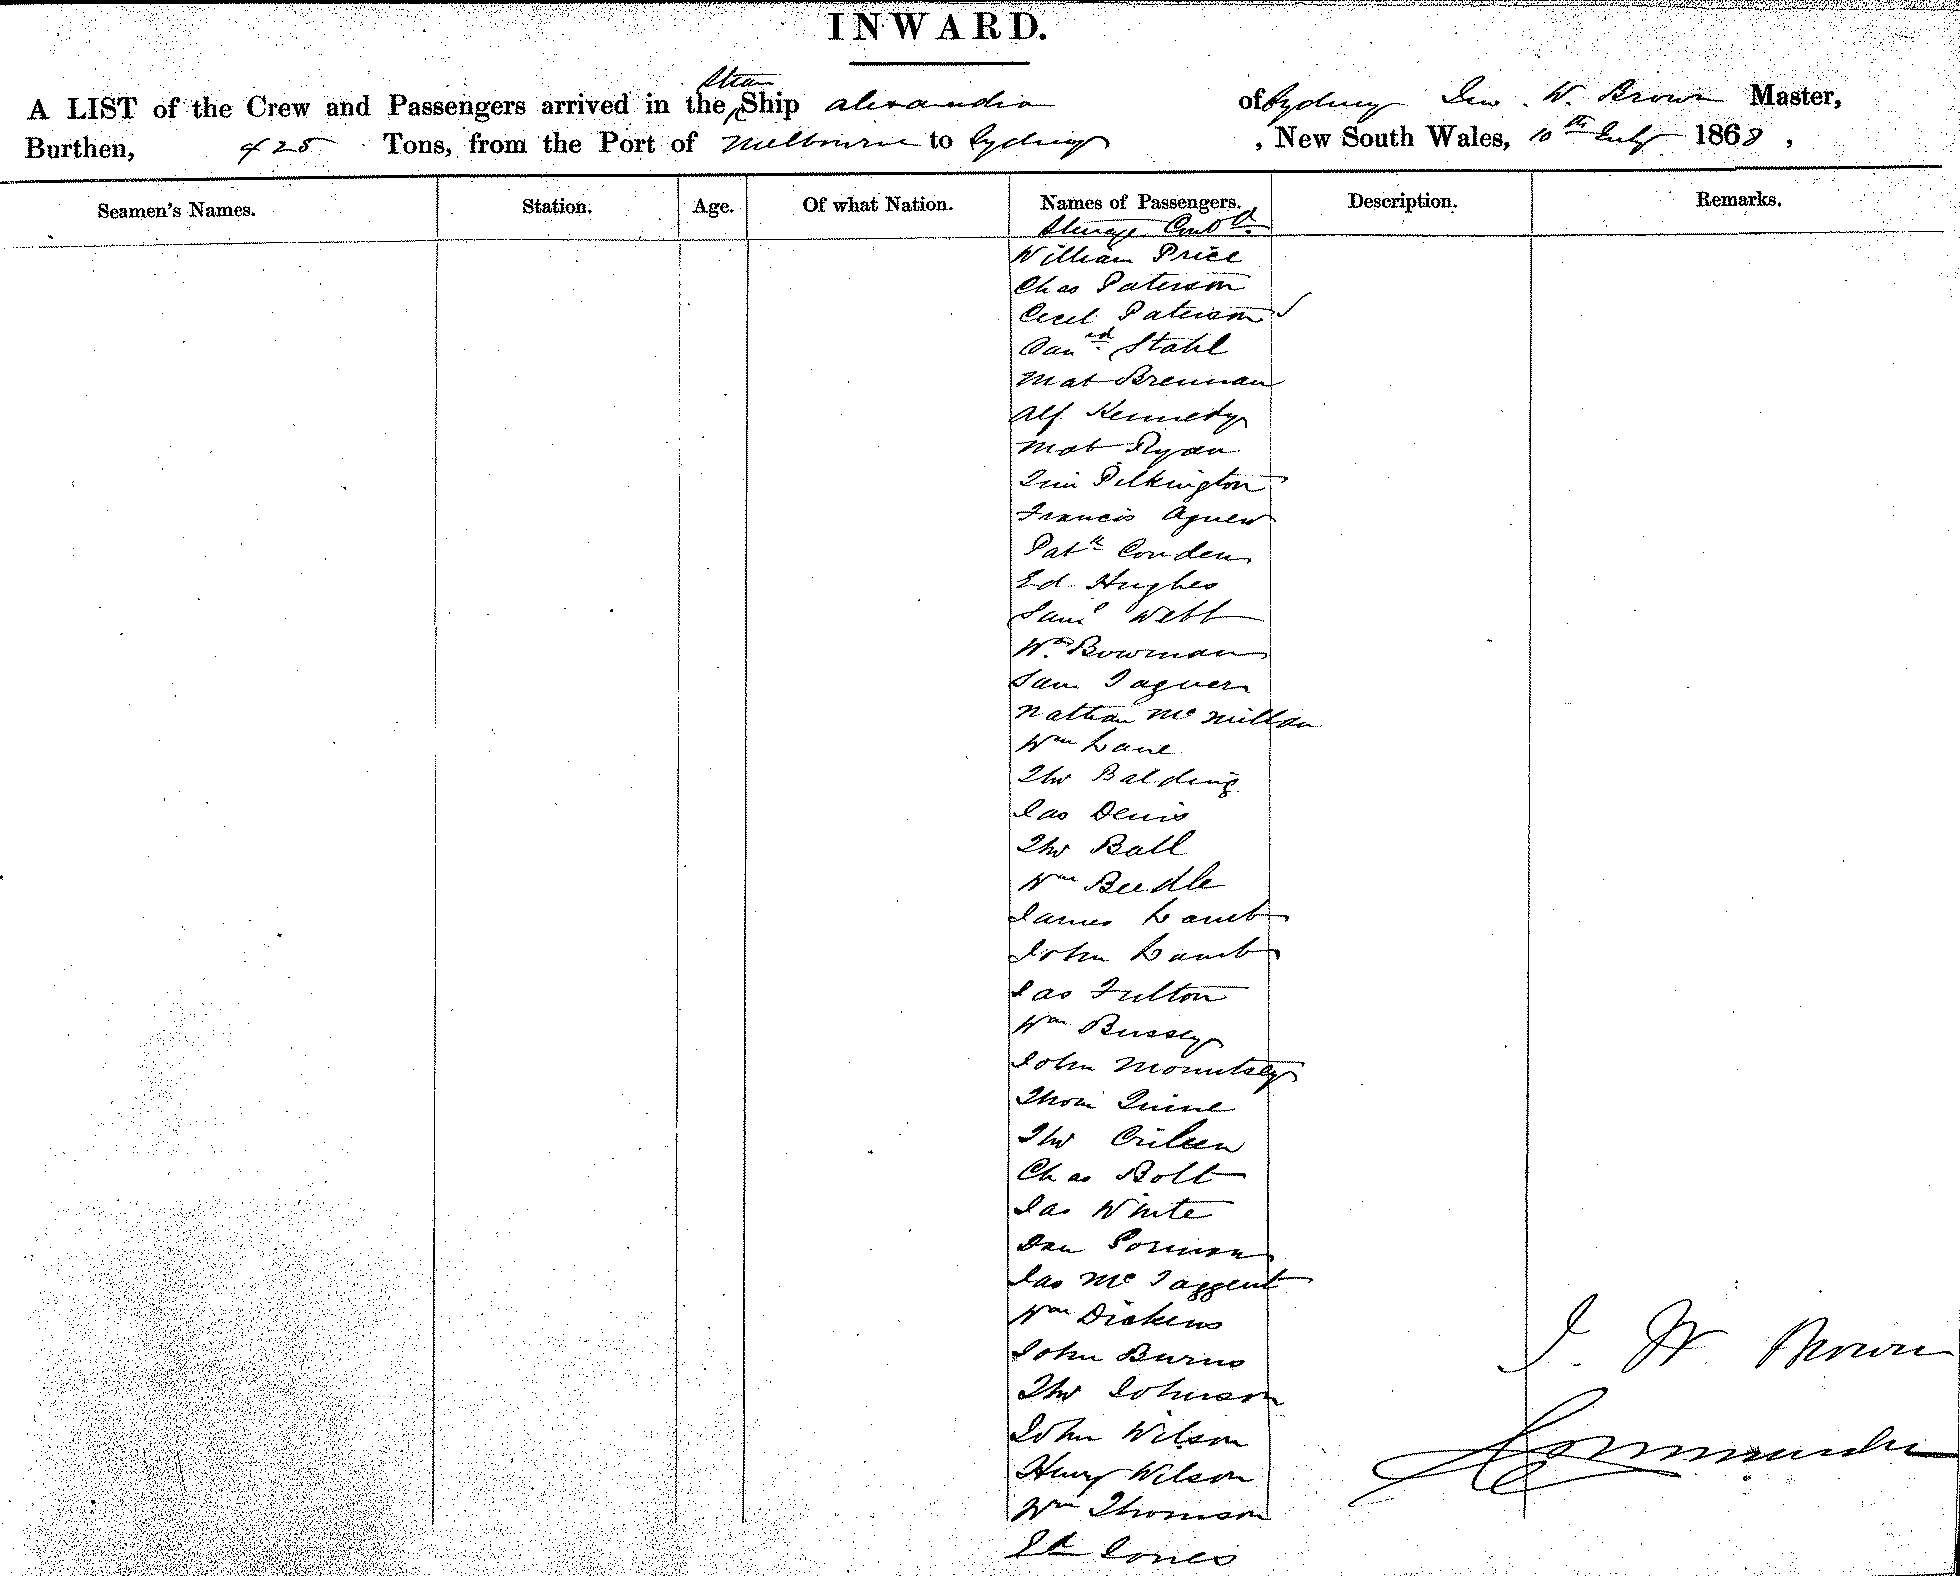 INWARD.
A LIST of the Crew and Passengers arrived in the Steam Ship Alexandra of Sydney W. Brown Master,
Burthen, 425 Tons, from the Port of Melbourne to Sydney, New South Wales, 10th July 1868,
Seamen's Names. Station. Age. Of what Nation. Names of Passengers. Description. Remarks.
Steerage Contd
William Price
Chas Paterson
Cecil Paterson
Stahl
Mat Brennan
Alf Kennedy
Mat Ryan
Pilkington
Francis Agnew
Patk Conden
Ed Hughes
Saml Webb
Wm Bowman
Sam
Nathan McMillan
Wm Lane
Thos Balding
Jas Denis
Thos Ball
Wm Beedle
James Lamb
John Lamb
Jas Fulton
Wm Bussey
John Mountsey
Thos
Chas Bolt
Jas White
Dan
Jas McTaggent
Wm Dickens
John Burns
Thos Johnson
John Wilson
Henry Wilson
Wm Thomson
Ed Jones
J. W Brown
Commander